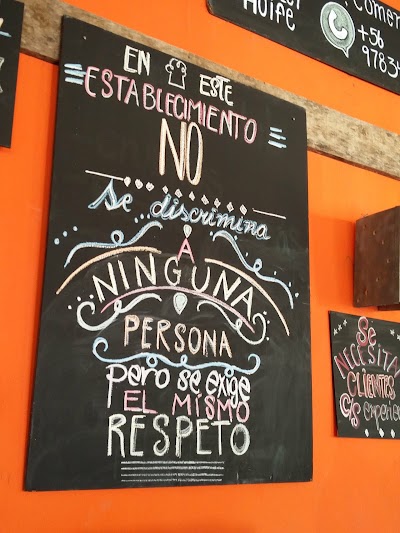 EN ESTE
ESTABLECIMIENTO
NO
se discrimina
A
NINGUNA
PERSONA
pero se exige
EL MISMO
RESPETO
+56
9783
Se
NECESITAN
CLIENTES